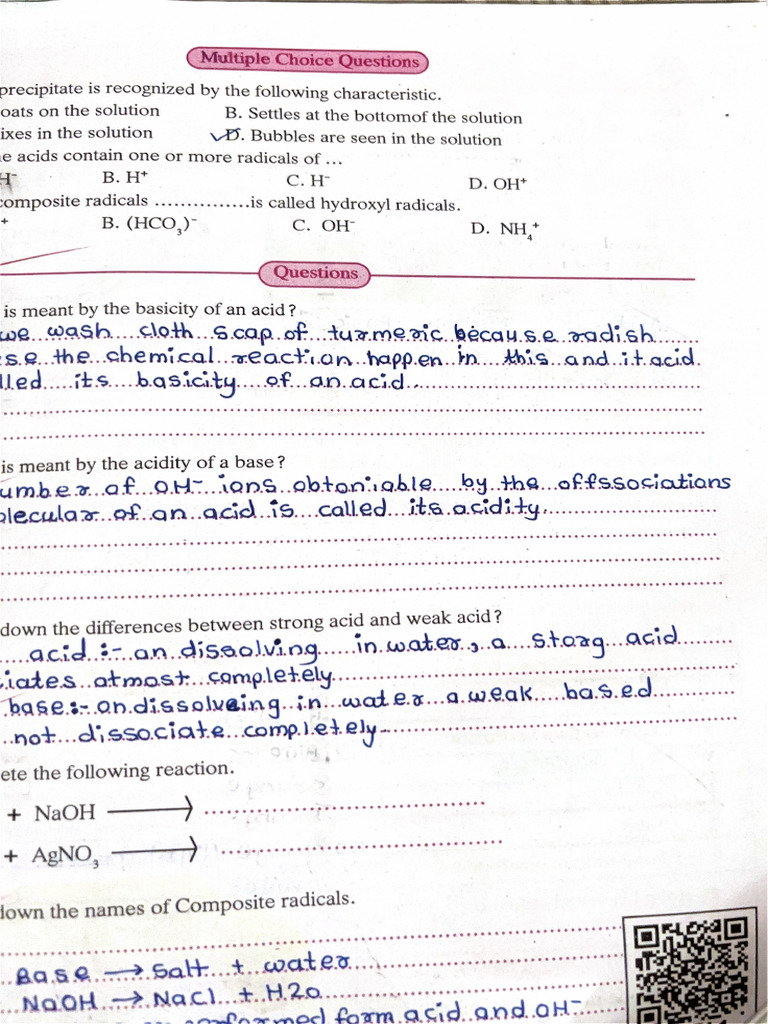 Multiple Choice Questions
precipitate is recognized by the following characteristic.
oats on the solution B. Settles at the bottomof the solution
ixes in the solution D. Bubbles are seen in the solution
e acids contain one or more radicals of ...
H⁻ B. H⁺ C. H⁻ D. OH⁺
composite radicals ...............is called hydroxyl radicals.
⁺ B. (HCO₃)⁻ C. OH⁻ D. NH₄⁺
Questions
is meant by the basicity of an acid?
we wash cloth scap of turmeric because radish
se the chemical reaction happen in this and it acid
lled its basicity of an acid.
is meant by the acidity of a base?
umber of OH⁻ ions obtoniable by the offssociations
olecular of an acid is called its acidity.
down the differences between strong acid and weak acid?
acid :- an dissolving in water, a storg acid
iates atmost completely
base:- an dissolveing in water a weak based
not dissociate completely-
ete the following reaction.
+ NaOH ⟶
+ AgNO₃ ⟶
down the names of Composite radicals.
Base → Salt + water
NaOH → Nacl + H2o
form acid and OH⁻